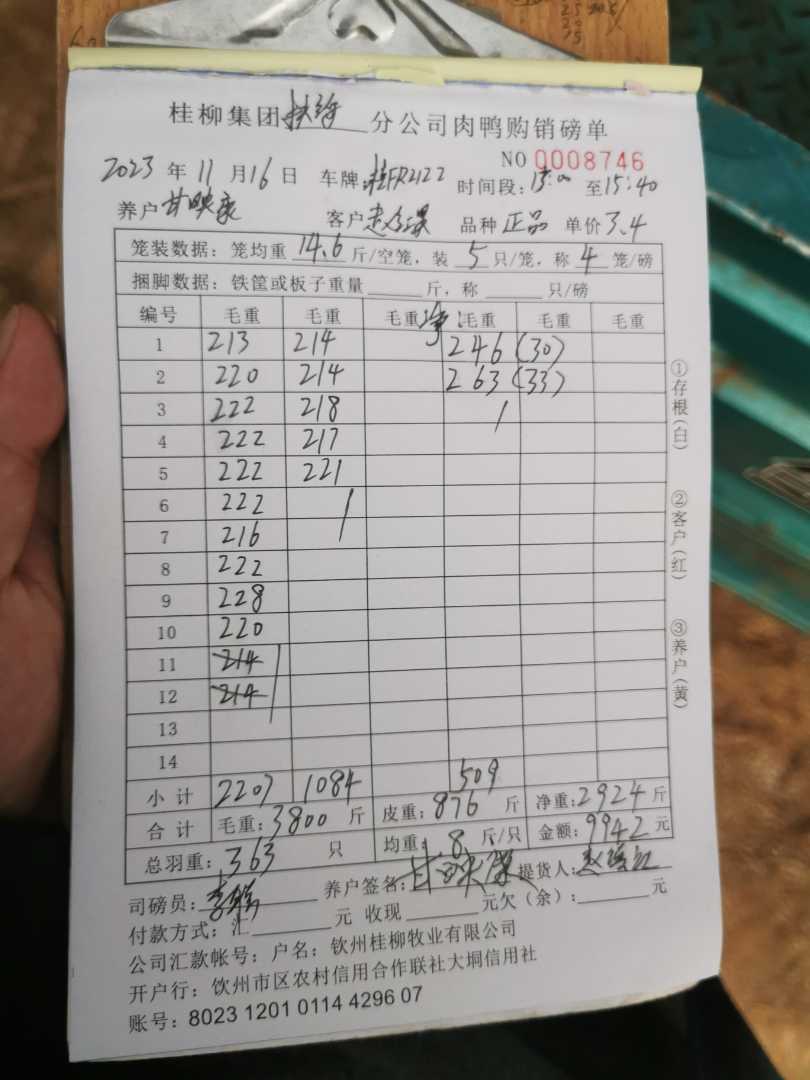 桂柳集团扶绥分公司肉鸭购销磅单
NO 0008746
2023年11月16日 车牌:桂FR2122 时间段:15:00至15:40
养户甘映 客户赵 品种正品 单价3.4
笼装数据：笼均重14.6斤/空笼，装5只/笼，称4笼/磅
捆脚数据：铁筐或板子重量 斤，称 只/磅
编号 毛重 毛重 毛重 净:毛重 毛重 毛重
1 213 214 246 (30)
2 220 214 263 (33)
3 222 218
4 222 217
5 222 221
6 222
7 216
8 222
9 228
10 220
11 214
12 214
13
14
小计 2207 1084 509
合计 毛重:3800斤 皮重:876斤 净重:2924斤
总羽重:363只 均重:8斤/只 金额:9942元
司磅员:李 养户签名:甘映 提货人:赵
付款方式：汇 元 收现 元欠（余）: 元
公司汇款帐号；户名：钦州桂柳牧业有限公司
开户行：饮州市区农村信用合作联社大垌信用社
账号：8023 1201 0114 4296 07
①存根(白)
②客户(红)
③养户(黄)